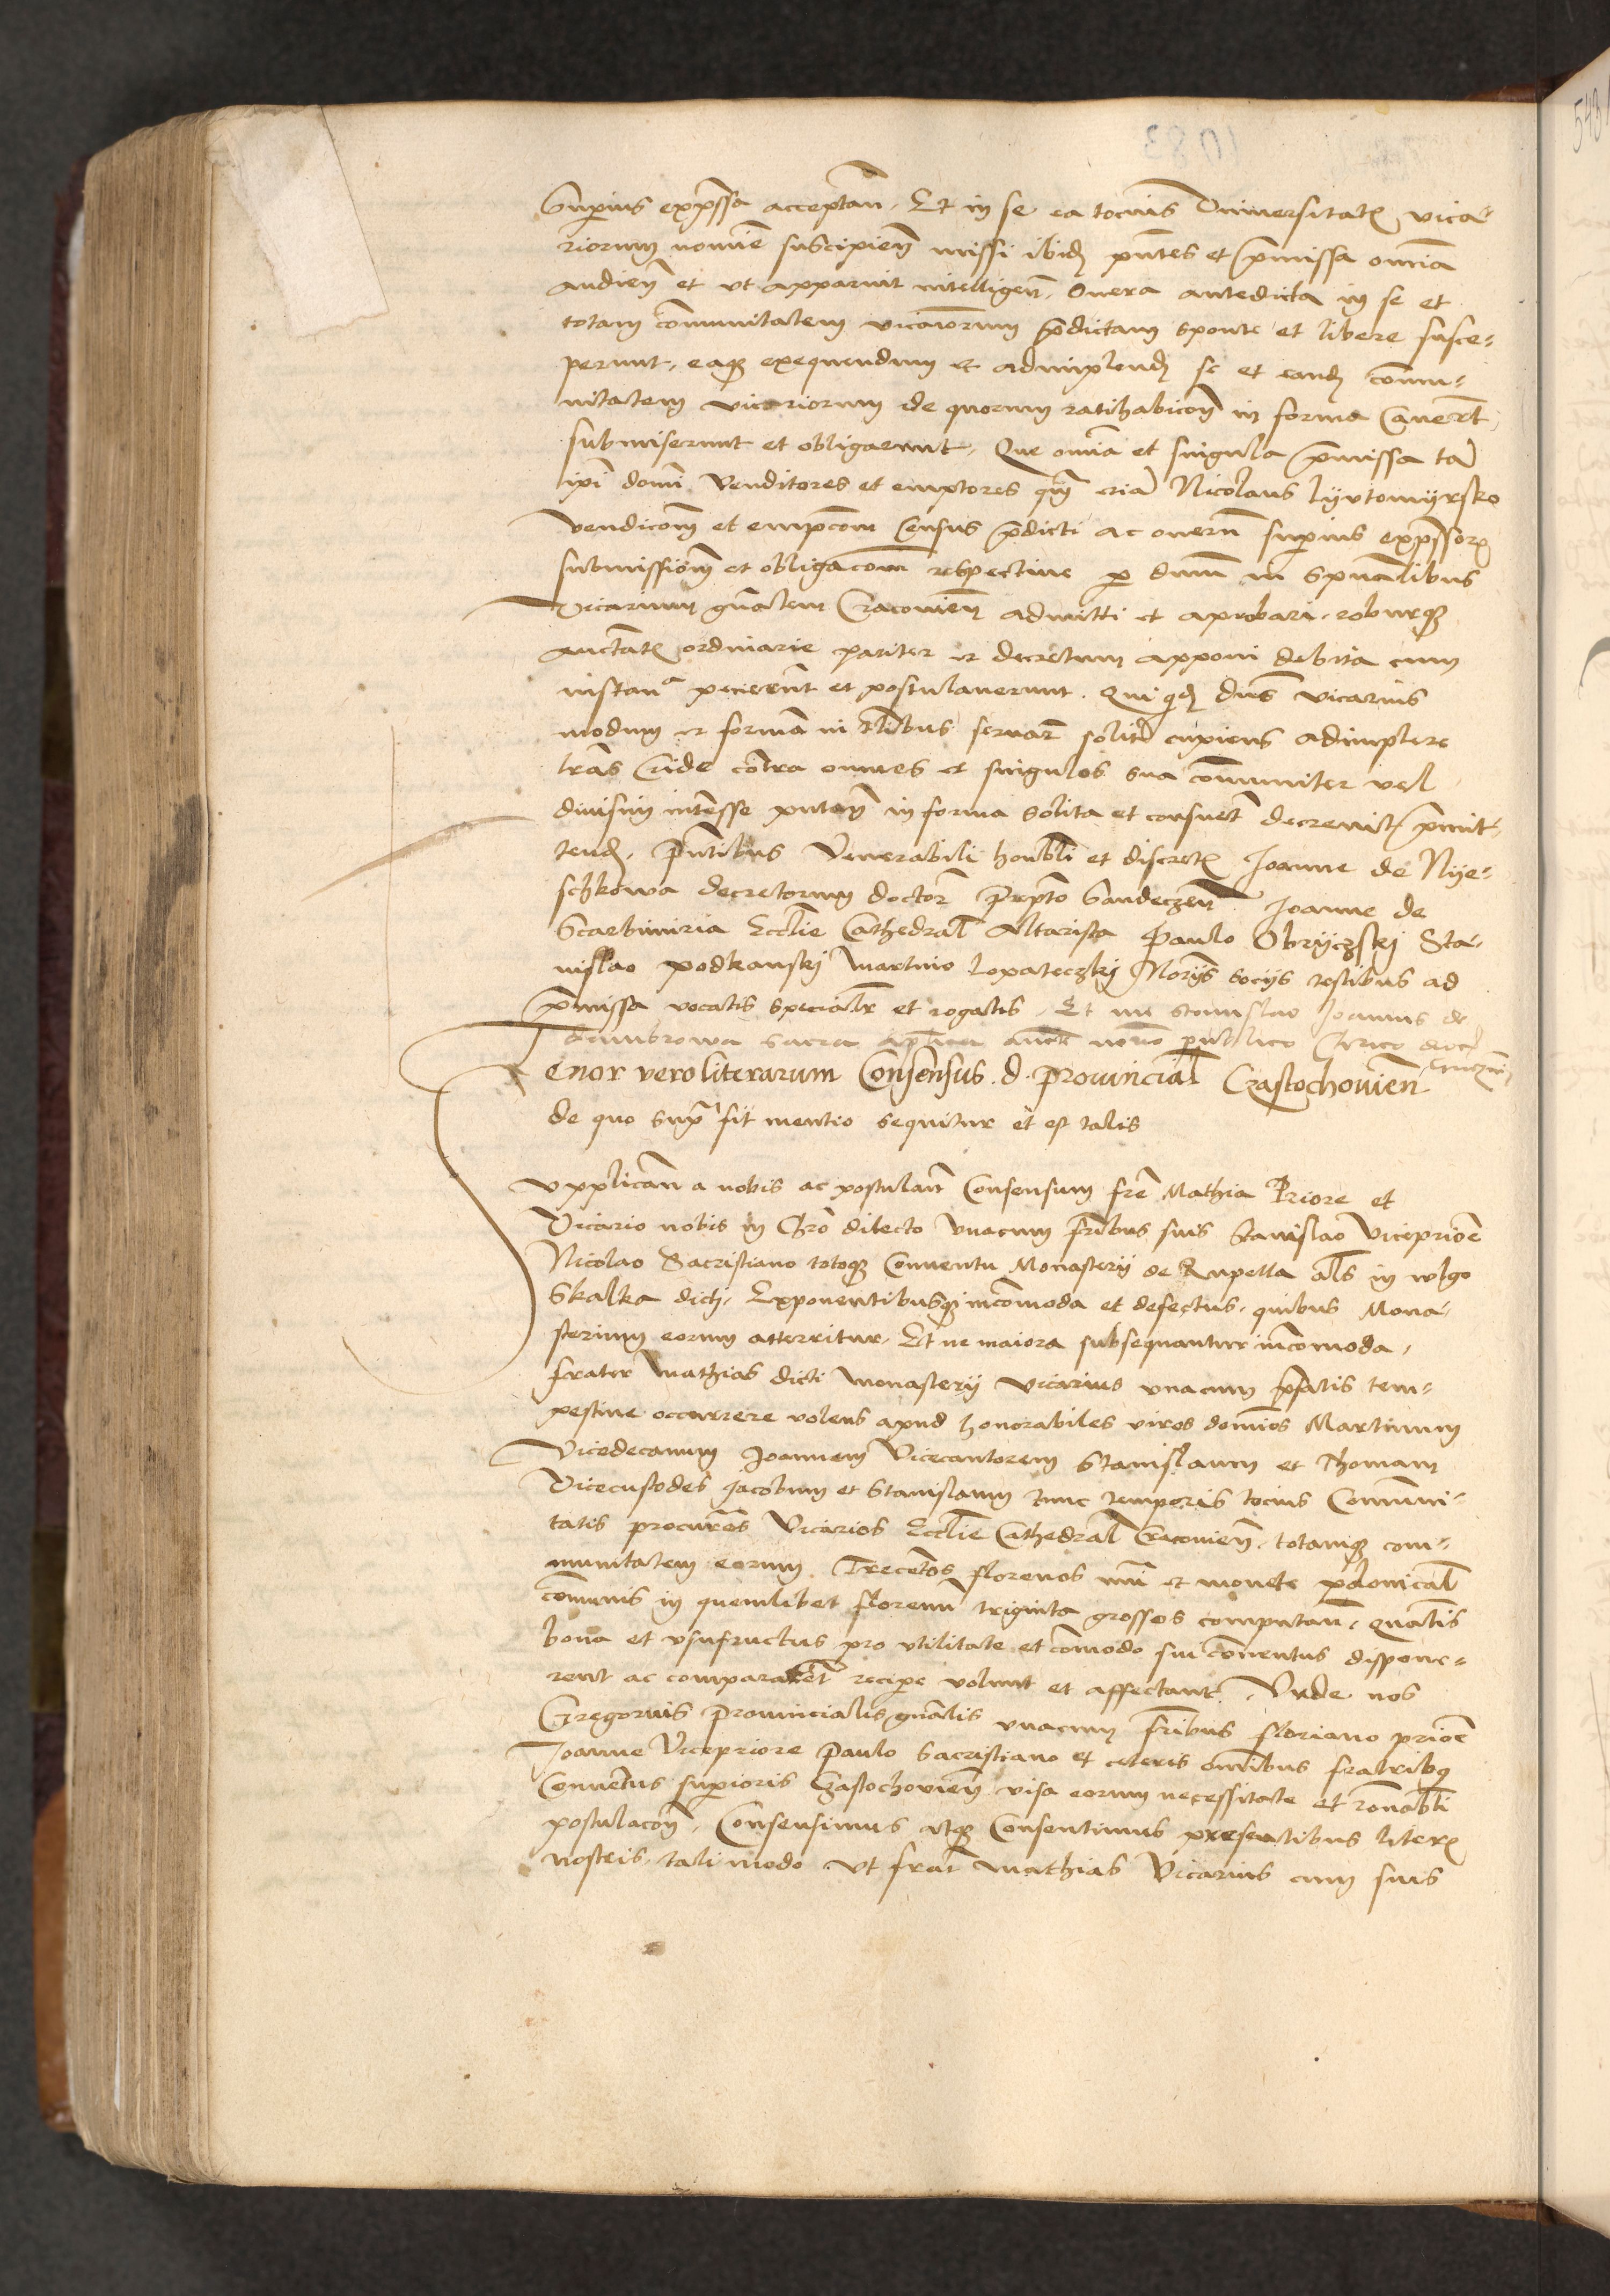 Superius exp̄ssa acceptan̄. Et in se ea tocius Vniversitatis vica-
riorum nomīe suscipien̄ missi ibid̄ pn̄tes et p̄missa om̄ia
audien̄ et vt apparuit intelligen̄. Onera antedicta in se et
totam cōmunitatem vicariorum p̄dictam sponte et libere susce-
perunt, eaq₃ exequendum et adimplend̄ se et eand̄ cōmu-
nitatem vicariorum de quorum ratihabicōn̄ in forma Cauerūt
submiserunt et obligaerunt. Que om̄ia et singula p̄missa tā
ip̄i domī Venditores et emptores qm̄ eciā Nicolaus Lyutomyrsko
vendicōn̄ et empcōm Census p̄dicti ac onerū superius exp̄ssorꝫ
submissiōn̄ et obligacōn̄ respectiue per dnm̄ in spūalibus
Vicarium gn̄alem Cracovien̄ admitti et aprobari, roburq₃
auctātis ordinarie pariter et decretum apponi debita cum
instan̄ᵃ pecierūt et postulauerunt. Qui qd̄ dn̄s vicarius
modum et formā in tālibus seruarī solitā cupiens adimplere
lrās Cride cōtra omnes et singulos sua cōmuniter vel
diuisim intēsse putan̄ in forma solita et consuetā decreuit p̄mit-
tend̄. Pn̄tibus Venerabili honbl̄i et discretis Joanne de Nye-
schkowa decretorum doctor̄ Prep̄to Sandeczen̄ Joanne de
Scarbimiria Eccl̄ie Cathedral̄ Altarista Paulo Obryczskj Sta-
nislao podkanskj Martino Lopateczkj Norīs sociis testibus ad
p̄missa vocatis specialr̄ et rogatis. Et me Stanislao Joannis de
Dambrowa sacra aplica auctē notō publico Clerico dioc̄
Gneznēn̄
Tenor vero literarum Consensus d. prouincial̄ Czastochouien̄
de quo supra fit mentio sequitur et est talis
Supplicān̄ a nobis ac postulān̄ Consensum frē Mathia Priore et
Vicario nobis in Chrō dilecto vnacum frībus suis Stanislao Viceprioe
Nicolao Sacristiano totoq₃ Conuentu Monasterij de Rupella als̄ in wlgo
Skalka dicti. Exponentibusq₃ incōmoda et defectus, quibus Mona-
sterium eorum atterritur. Et ne maiora subsequantur incōmoda,
frater Mathias dicti monasterij Vicarius vnacum p̄fatis tem-
pestiue occurrere volens apud honorabiles viros domīos Martinum
Vicedecanum Joannem Vicecantorem Stanislaum et Thomam
Vicecustodes Jacobum et Stanislaum tunc temporis tocius Communi-
tatis procurēs Vicarios Eccl̄ie Cathedral̄ Cracouien̄, totamq₃ com-
munitatem eorum Trecētos florenos mm̄ et monete polonical̄
cōmunis in quemlibet florenū triginta grossos computān̄, quatīs
bona et vsufructus pro vtilitate et cōmodo sui Conuentus dispone-
rent ac compararēt recipe volunt et affectant. Vnde nos
Gregorius Prouincialis gn̄alis vnacum frībus floriano prioe
Joanne Vicepriore Paulo Sacristiano et ceteris om̄ibus fratribꝫ
Conuētus superioris Czastochouien̄ visa eorum necessitate et ronābli
postulacōn̄. Consensimus atq₃ Consentimus presentibus literis
nostris, tali modo vt frat̄ Mathias Vicarius cum suis